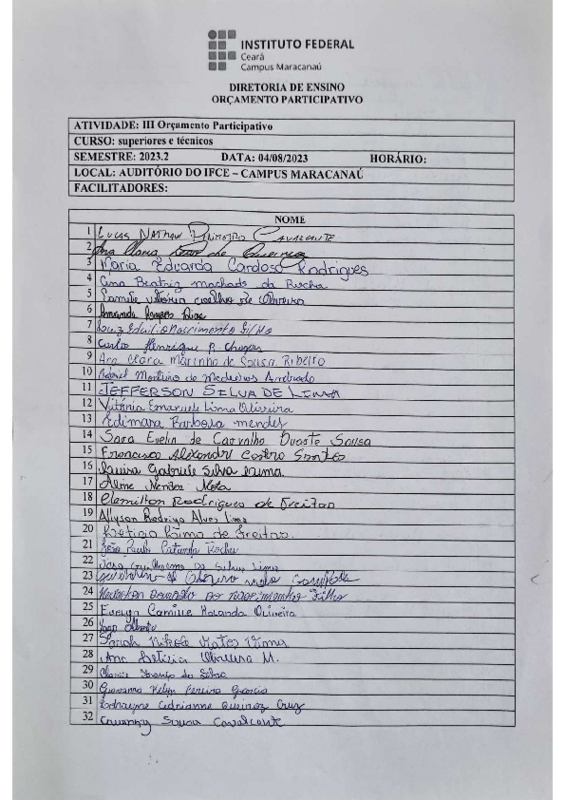 INSTITUTO FEDERAL
Ceará
Campus Maracanaú
DIRETORIA DE ENSINO
ORÇAMENTO PARTICIPATIVO
ATIVIDADE: III Orçamento Participativo
CURSO: superiores e técnicos
SEMESTRE: 2023.2 DATA: 04/08/2023 HORÁRIO:
LOCAL: AUDITÓRIO DO IFCE – CAMPUS MARACANAÚ
FACILITADORES:
NOME
1 Lucas Nathan Cavalcante
2 Ana Clara
3 Maria Eduarda Cardoso Rodrigues
4 Ana Beatriz machado da Rocha
5 Vitória Coelho de Oliveira
6
7 Luiz Nascimento
8 Carlos Henrique
9 Ana Clara Marinho de Sousa Ribeiro
10 Gabriel Monteiro de Medeiros Andrade
11 JEFFERSON SILVA DE LIMA
12 Vitória Emanuele Lima Oliveira
13 Edimara Barbosa mendes
14 Sara Evelin de Carvalho Duarte Sousa
15 Francisco Castro Santos
16 Gabriele Silva Lima
17 Aline Mendes Mota
18 Clemilton Rodrigues de Freitas
19 Allyson Rodrigo Alves Lima
20 Letícia Lima de Freitas
21 João Paulo Rocha
22 Silva Lima
23
24 do nascimento Filho
25 Evelyn Camille Holanda Oliveira
26
27 Sarah Nikole Matos Lima
28 Ana Letícia Oliveira M.
29 da Silva
30 Giovanna Kelyn Pereira
31 Adrianne Queiroz Cruz
32 Sousa Cavalcante